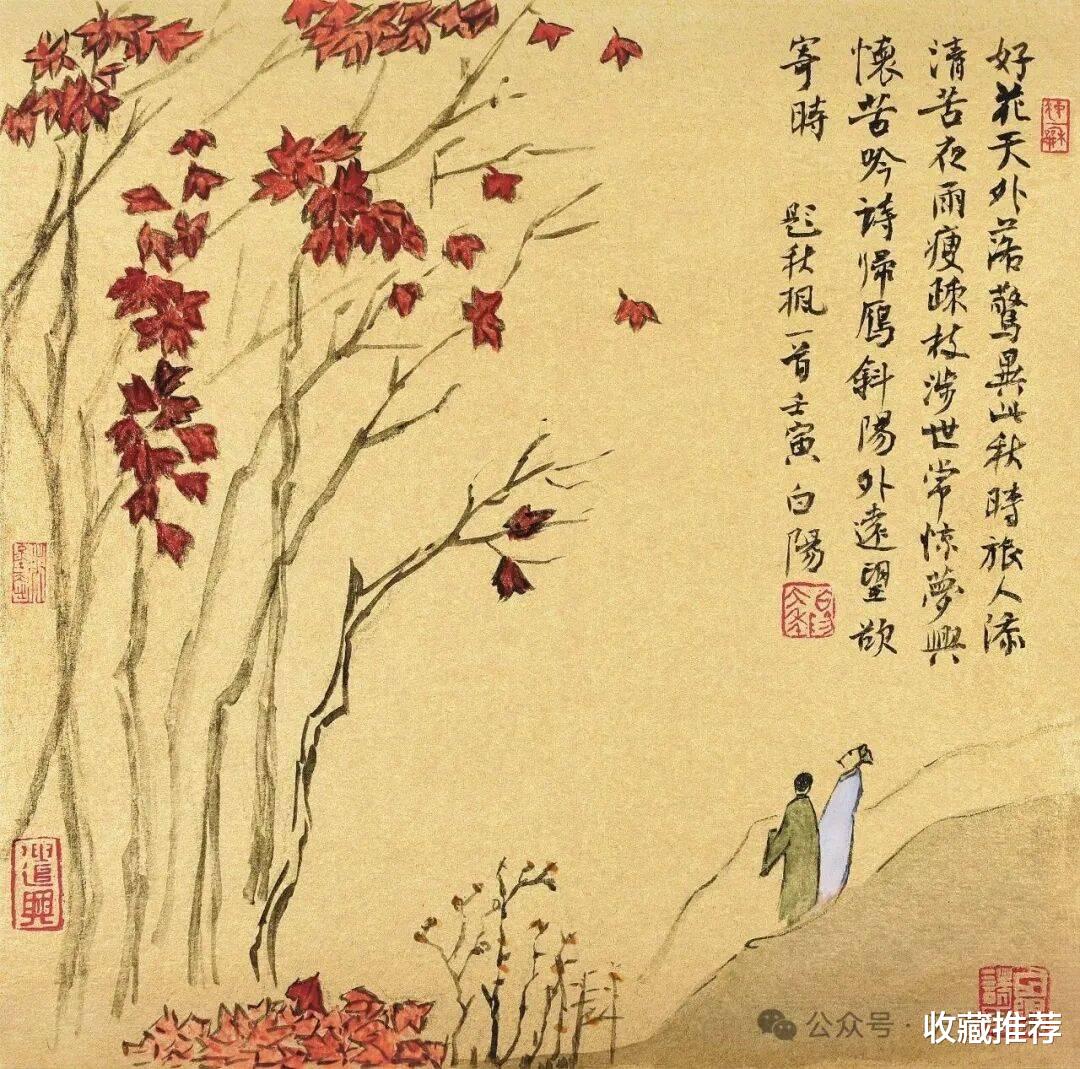 好花天外落驚異此秋時旅人添
清苦夜雨瘦疎枝涉世常惊夢興
懷苦吟詩歸鴈斜陽外遠望欲
寄時
題秋楓一首壬寅白陽
公众号·
收藏推荐